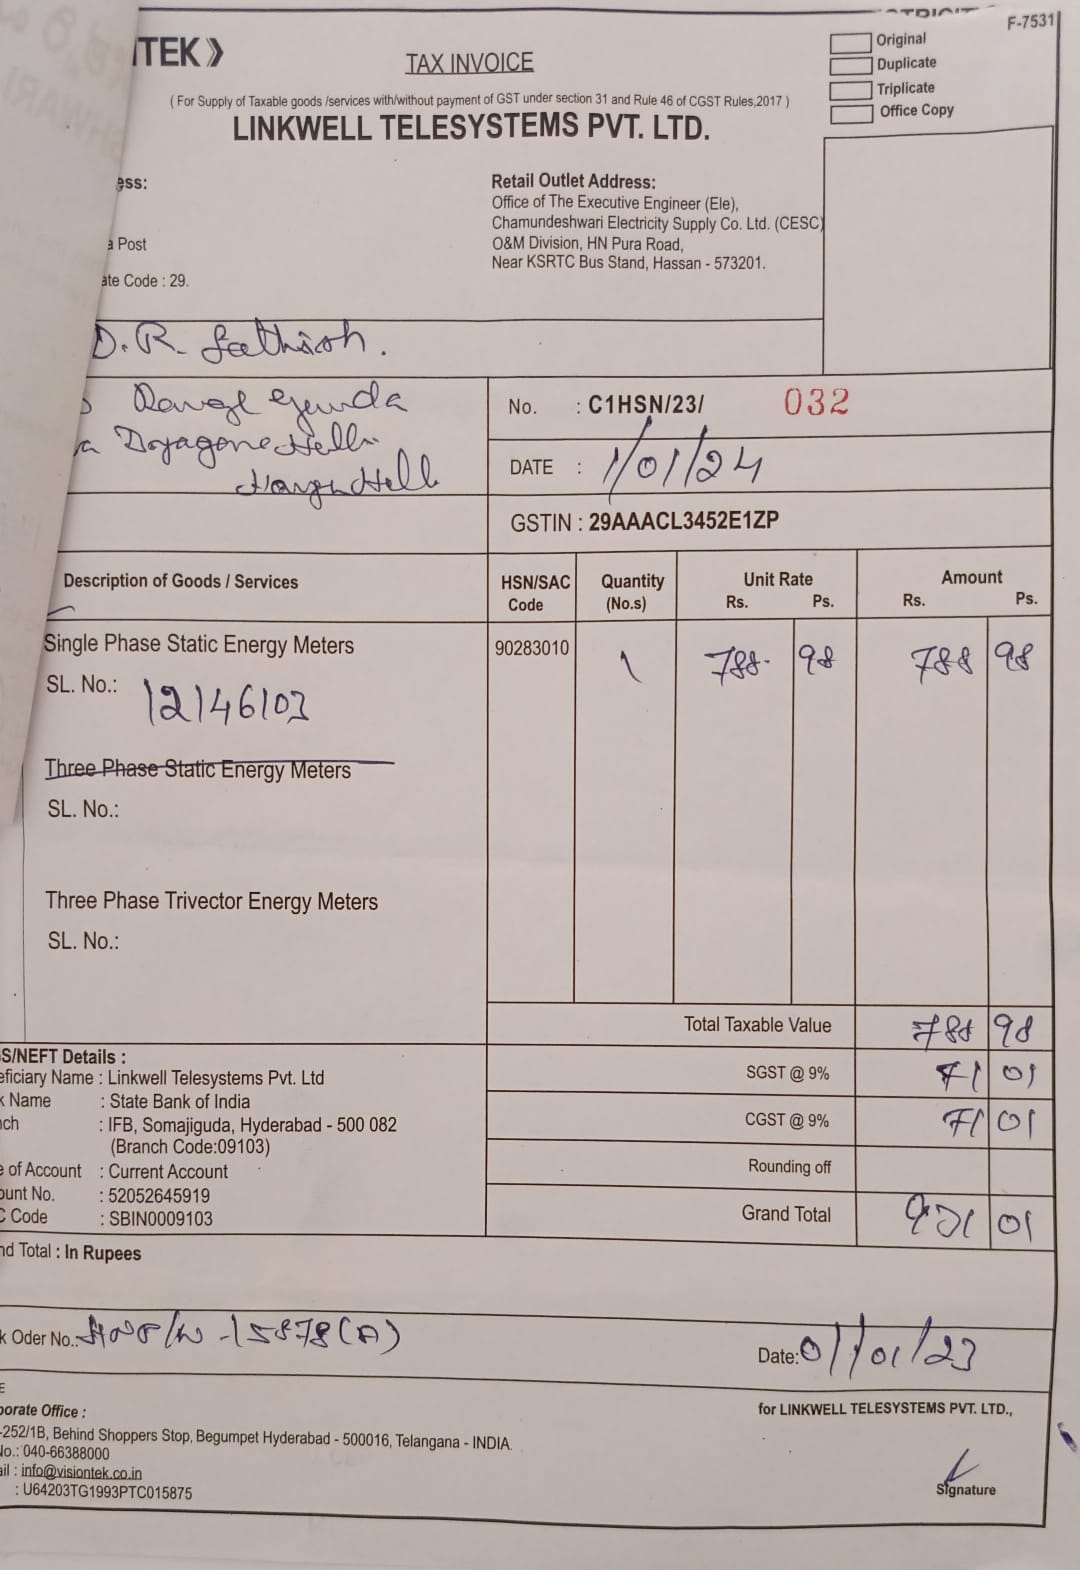 ITEK
TAX INVOICE
F-7531
Original
Duplicate
Triplicate
Office Copy
( For Supply of Taxable goods /services with/without payment of GST under section 31 and Rule 46 of CGST Rules,2017 )
LINKWELL TELESYSTEMS PVT. LTD.
ess:
a Post
ate Code : 29.
Retail Outlet Address:
Office of The Executive Engineer (Ele),
Chamundeshwari Electricity Supply Co. Ltd. (CESC)
O&M Division, HN Pura Road,
Near KSRTC Bus Stand, Hassan - 573201.
D.R. Sathish.
No. : C1HSN/23/ 032
DATE : 1/01/24
GSTIN : 29AAACL3452E1ZP
Description of Goods / Services HSN/SAC Code Quantity (No.s) Unit Rate Rs. Ps. Amount Rs. Ps.
Single Phase Static Energy Meters 90283010 1 788 98 788 98
SL. No.: 12146103
Three Phase Static Energy Meters
SL. No.:
Three Phase Trivector Energy Meters
SL. No.:
Total Taxable Value 788 98
SGST @ 9% 71 01
CGST @ 9% 71 01
Rounding off
Grand Total 931 01
S/NEFT Details :
eficiary Name : Linkwell Telesystems Pvt. Ltd
k Name : State Bank of India
nch : IFB, Somajiguda, Hyderabad - 500 082
(Branch Code:09103)
e of Account : Current Account
ount No. : 52052645919
C Code : SBIN0009103
nd Total : In Rupees
k Oder No.: 15878(A)
Date: 01/01/23
E
porate Office :
-252/1B, Behind Shoppers Stop, Begumpet Hyderabad - 500016, Telangana - INDIA.
No.: 040-66388000
ail : info@visiontek.co.in
: U64203TG1993PTC015875
for LINKWELL TELESYSTEMS PVT. LTD.,
Signature